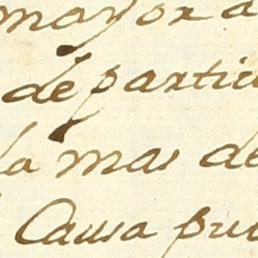 mayor a
de partic
la mas de
Causa pu